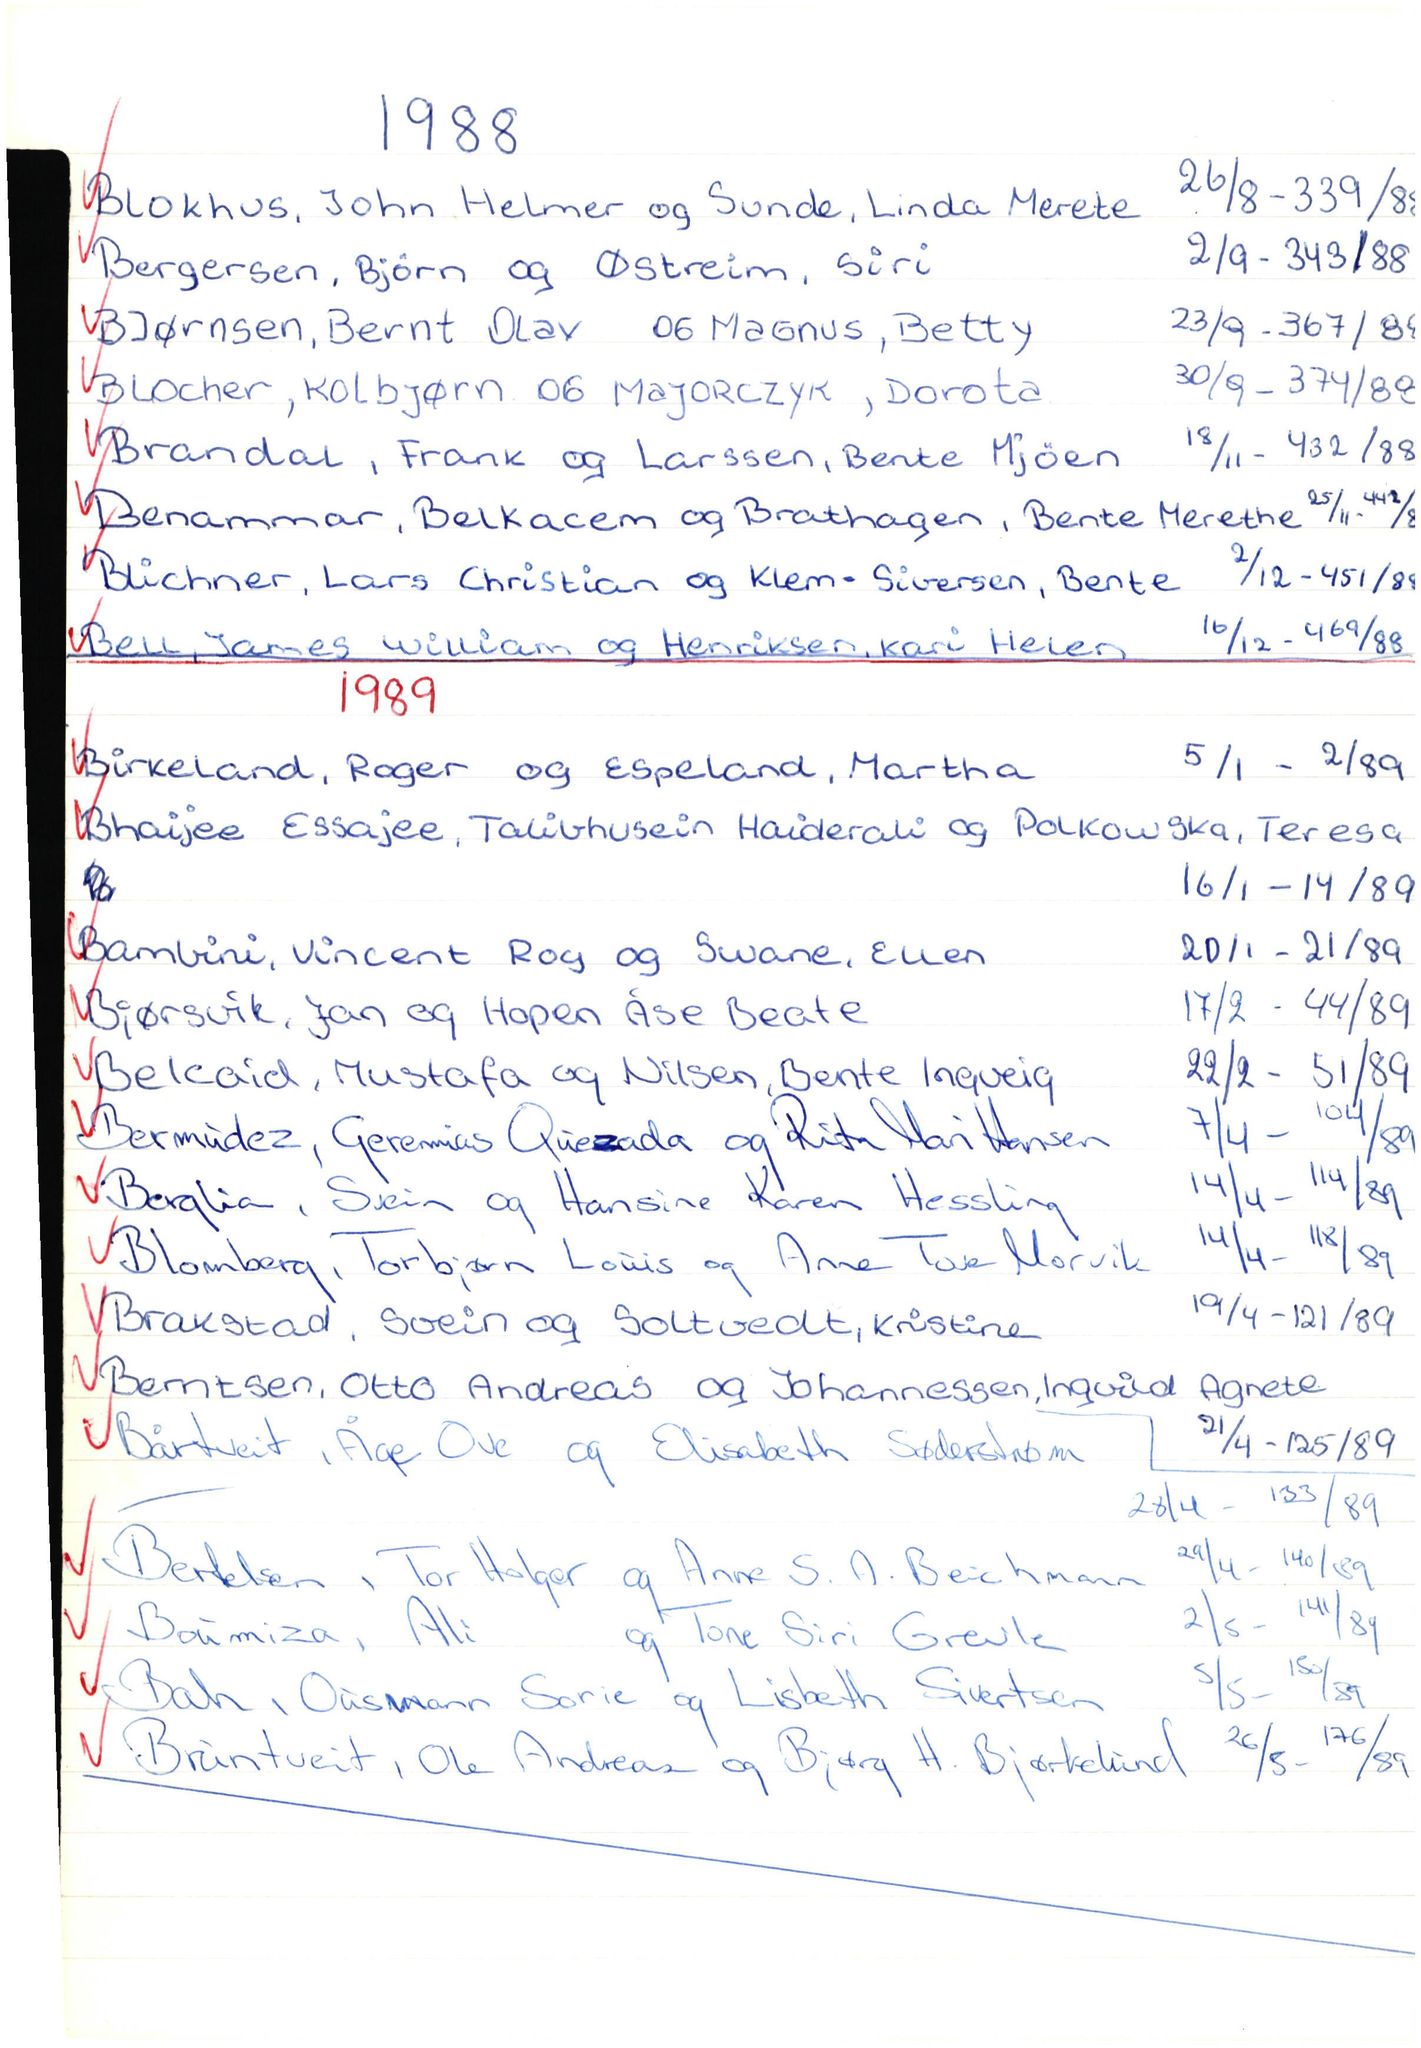 1988
Blokhus, John Helmer og Sunde, Linda Merete 26/8 - 339/88
Bergersen, Björn og Østreim, Siri 2/9 - 343/88
BJørnsen, Bernt Olav OG MAGNUS, Betty 23/9 - 367/88
BLOCHER, KOLbjørn OG MAJORCZYK, DOROTA 30/9 - 374/88
Brandal, Frank og Larssen, Bente Mjöen 18/11 - 432/88
Benammar, Belkacem og Brathagen, Bente Merethe 25/11 - 442/8
Blichner, Lars Christian og Klem-Siversen, Bente 2/12 - 451/88
Bell, James William og Henriksen, Kari Helen 16/12 - 469/88
1989
Birkeland, Roger og Espeland, Martha 5/1 - 2/89
Bhaijee Essajee, Talibhusein Haiderali og Polkowska, Teresa
16/1 - 14/89
Bambini, Vincent Roy og Swane, Ellen 20/1 - 21/89
Bjørsvik, Jan og Hopen Åse Beate 17/2 - 44/89
Belcaid, Mustafa og Nilsen, Bente Ingveig 22/2 - 51/89
Bermúdez, Geremias Quezada og Rita Mari Hansen 7/4 - 104/89
Berglia, Svein og Hansine Karen Hessling 14/4 - 114/89
Blomberg, Torbjørn Louis og Anne Tove Morvik 14/4 - 118/89
Brakstad, Svein og Soltvedt, Kristine 19/4 - 121/89
Berntsen, Otto Andreas og Johannessen, Ingvild Agnete
21/4 - 125/89
Bårtveit, Åge Ove og Elisabeth Søderstrøm
28/4 - 133/89
Bertelsen, Tor Holger og Anne S. A. Beichmann 29/4 - 140/89
Boumiza, Ali og Tone Siri Grevle 2/5 - 141/89
Bah, Ousmann Sorie og Lisbeth Sivertsen 5/5 - 150/89
Bruntveit, Ole Andreas og Bjørg H. Bjørkelund 26/5 - 176/89